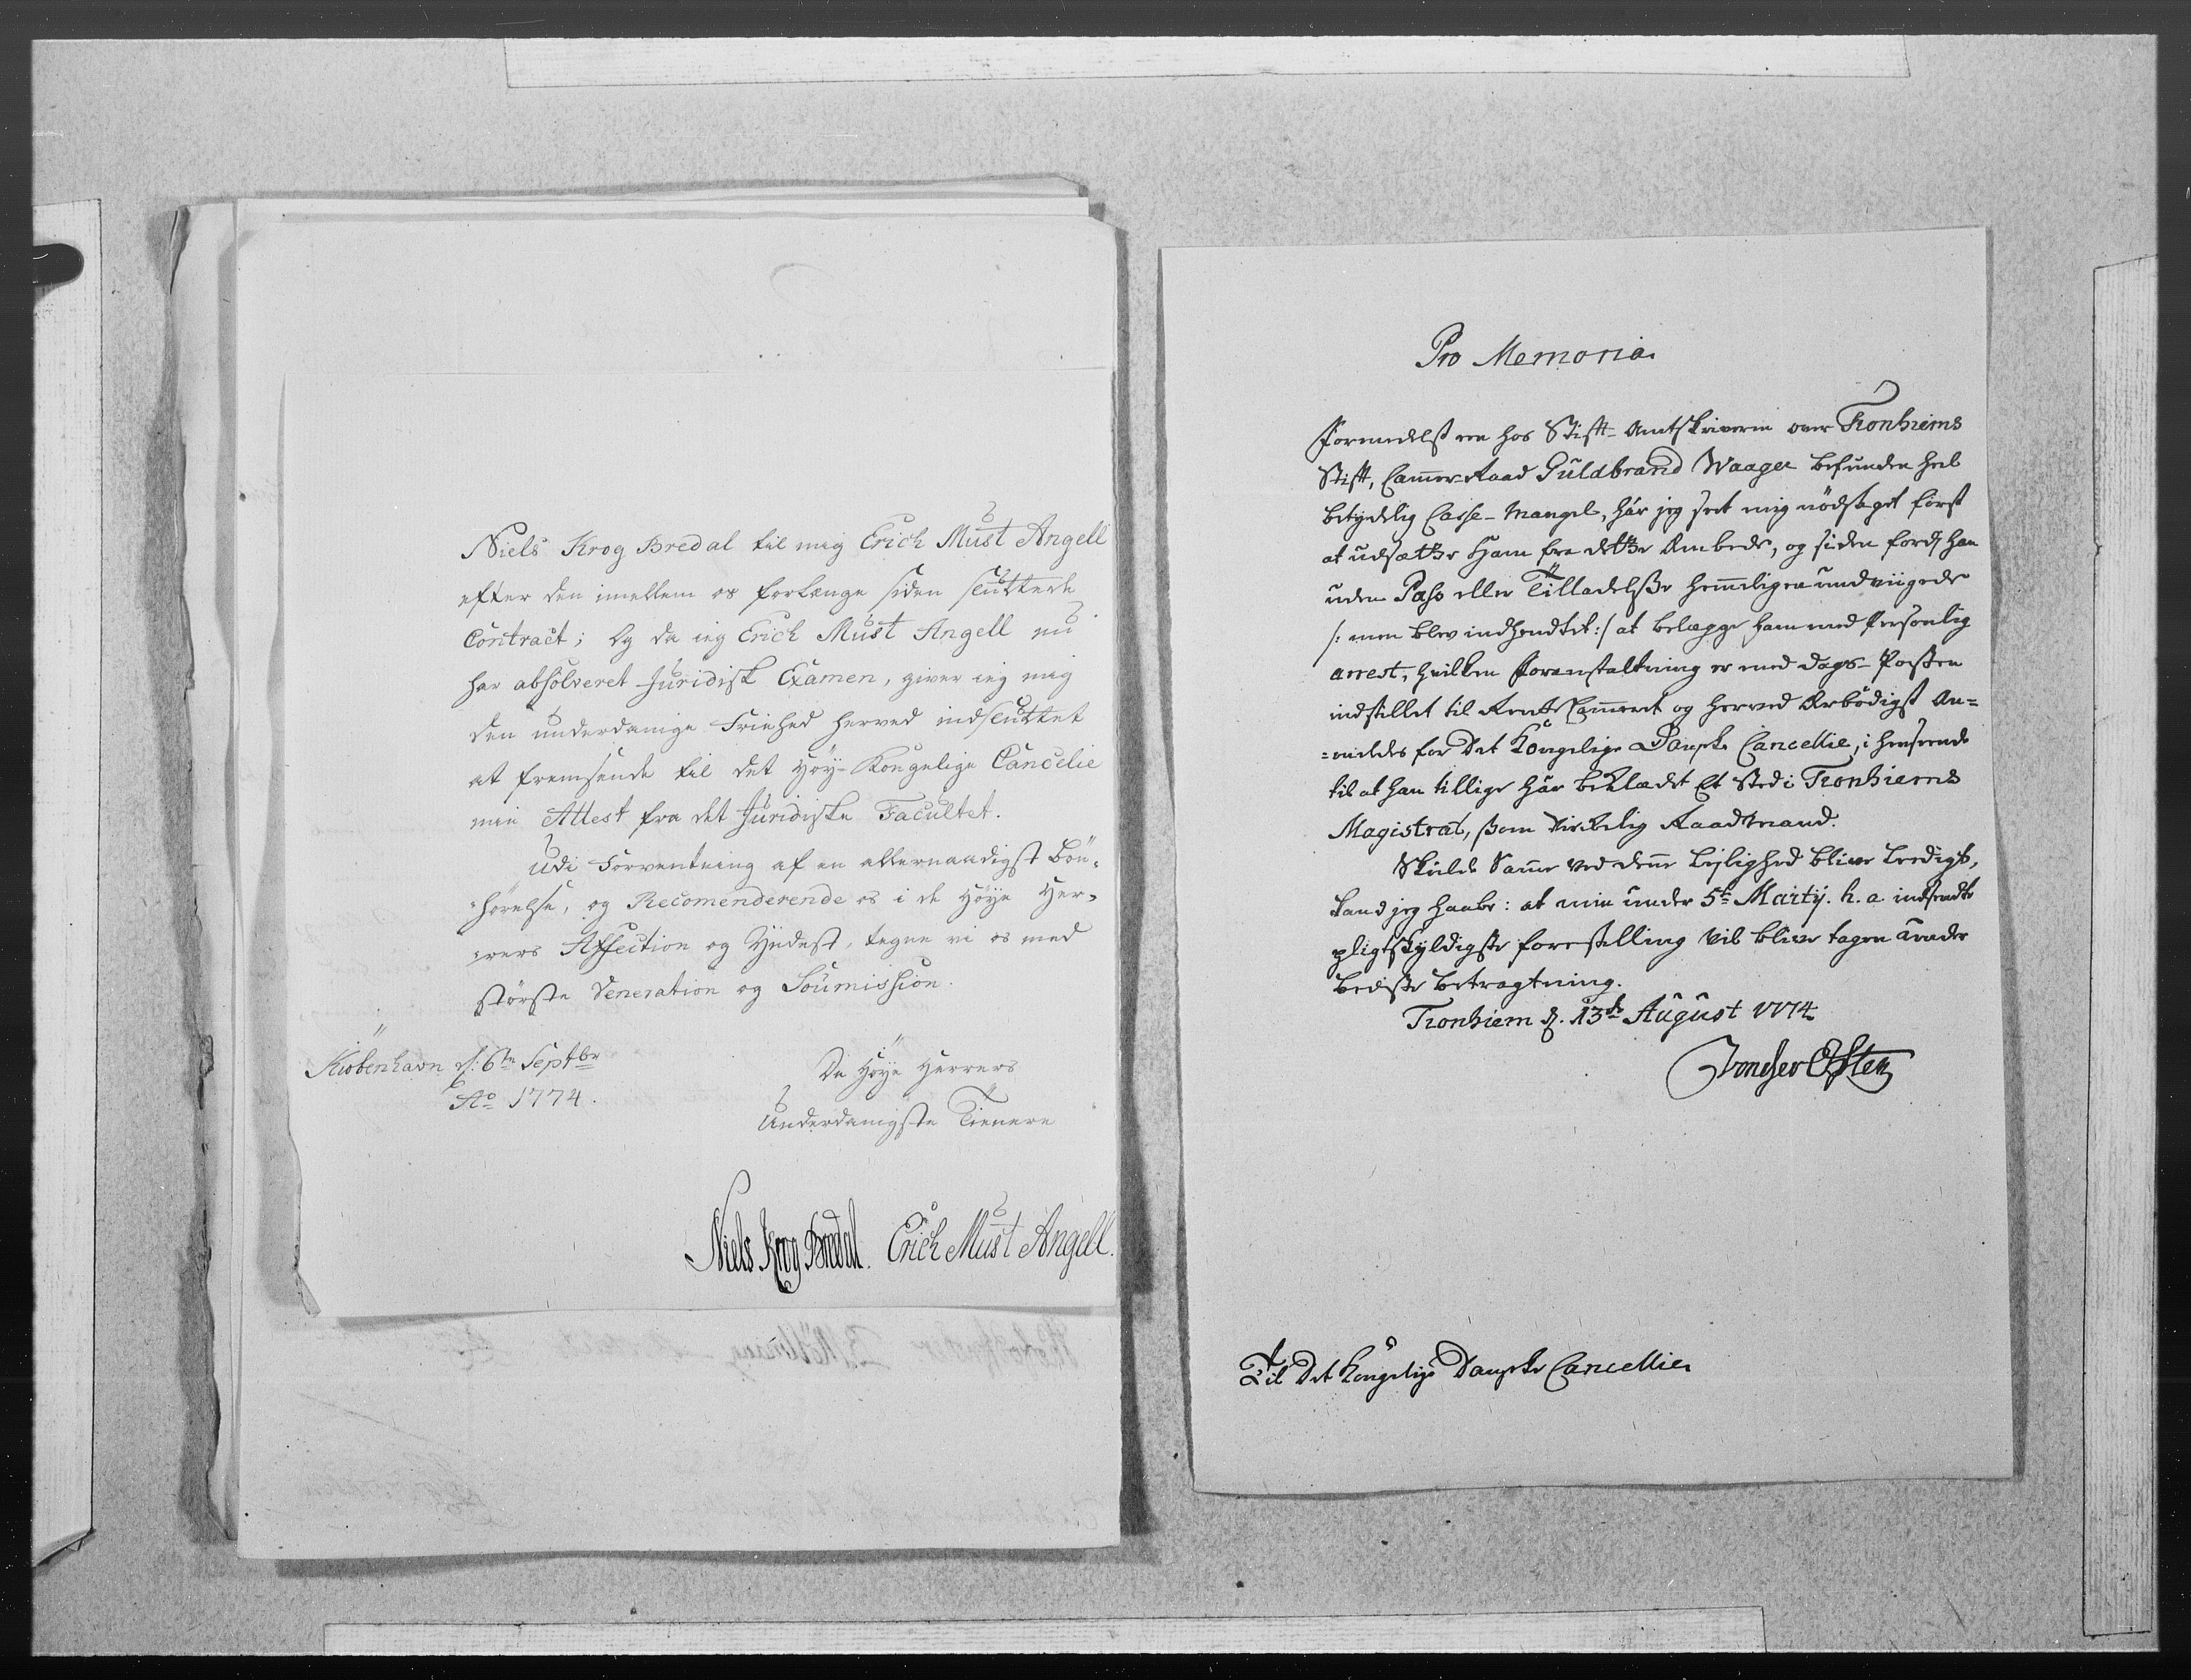 Niels Krog Bredal til mig Erich Must Angell
efter den imellem os forlænge siden sluttede
Contract; Og da ieg Erich Must Angell nu
har absolveret Juridisk Examen, giver ieg mig
den underdanige Friehed herved indsluttet
at fremsende til det Höy-Kongelige Cancelie
min Attest fra det Juridiske Facultet.
Udi Forventning af en allernaadigst Bön-
-hörelse, og Recomenderende os i de Höye Her-
-rers Affection og Yndest, tegne vi os med
störste Veneration og Soumission.
Kiöbenhavn d: 6te Septbr
Ao 1774.
De Höye Herrers
Underdanigste Tienere
Niels Krog Bredal. Erich Must Angell.
Pro Memoria
Formedelst een hos Stift-Amtskriveren over Tronhiems
Stift, Cammer-Raad Guldbrand Waager befunden heel
betydelig Casse-Mangel, har jeg seet mig nödsaget först
at udsætte Ham fra dette Embede, og siden fordj han
uden Pass eller Tilladelse hemmeligen undviigede
/: men blev indhendtet :/ at belægge ham med Personlig
arrest, hvilken Foranstaltning er med Dags-Posten
indstillet til Rente Cammeret og herved Ærbödigst An=
=meldes for Det Kongelige Danske Cancellie, i henseende
til at han tillige har beklædt Et Sted i Tronhiems
Magistrat, som Virkelig Raadmand.
Skulde Samme ved denne Leylighed blive Leedigt,
tand jeg haabe: at min under 5te Martij. h. a. indsendte
pligtskyldigste forestilling vil blive tagen under
beedste Betragtning.
Tronhiem d. 13de August 1774
von der Osten
Til Det Kongelige Danske Cancellie